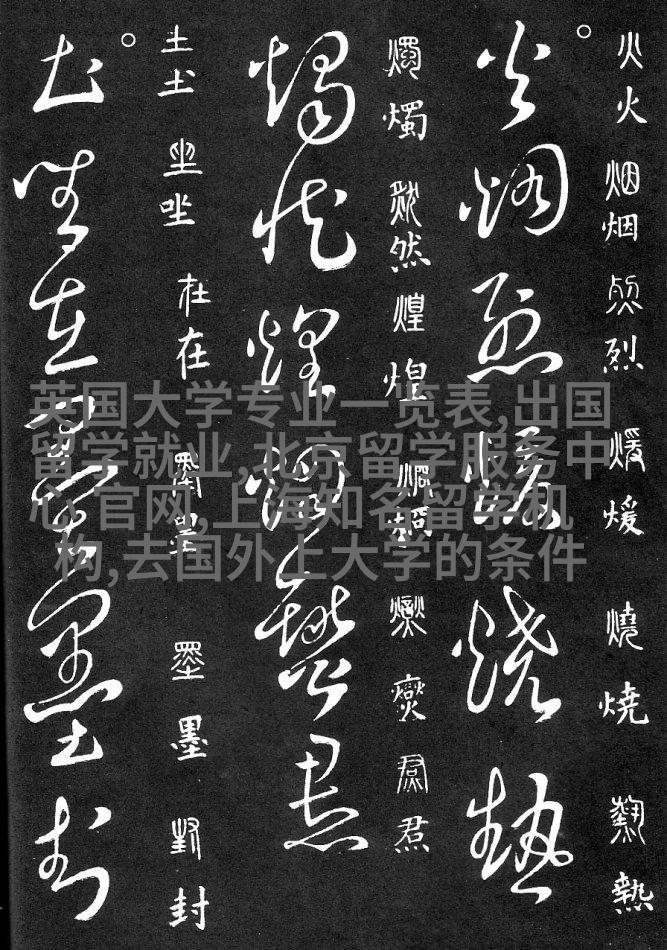 火火烟烟烈烈煖煖燒燒熱熱
火烟烈煖燒熱
燭燭然然煌煌燮燮焄焄
燭然煌燮焄
土土坐坐在在墨墨封封
土坐在墨封
英国大学专业一览表,出国
留学就业,北京留学服务中
心,官网,上海知名留学机
构,去国外上大学的条件